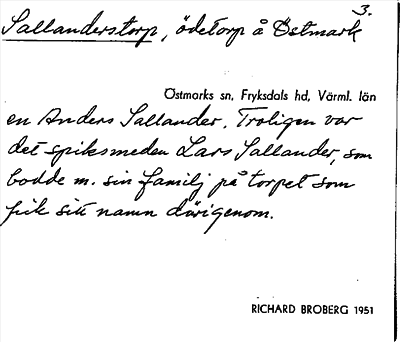 3.
Sallanderstorp, ödetorp å Östmark
Östmarks sn, Fryksdals hd, Värml. län
en Anders Sallander. Troligen var
det spiksmeden Lars Sallander, som
bodde m. sin familj på torpet som
fick sitt namn därigenom.
RICHARD BROBERG 1951